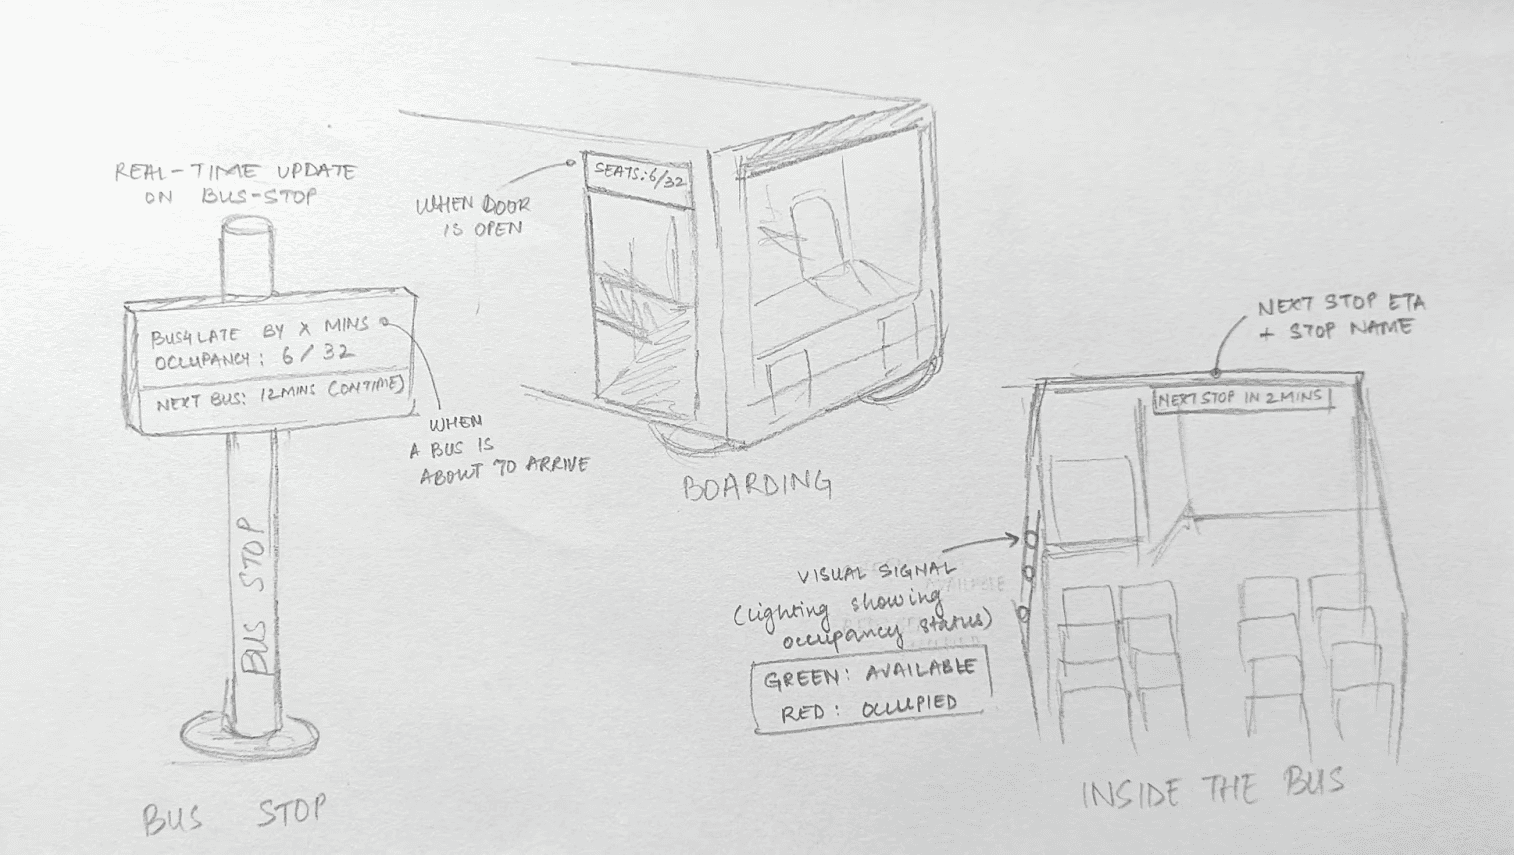 REAL-TIME UPDATE
ON BUS-STOP
BUS4 LATE BY X MINS
OCCUPANCY: 6/32
NEXT BUS: 12 MINS (ONTIME)
WHEN
A BUS IS
ABOUT TO ARRIVE
BUS STOP
BUS STOP
WHEN DOOR
IS OPEN
SEATS: 6/32
BOARDING
NEXT STOP ETA
+ STOP NAME
NEXT STOP IN 2 MINS
VISUAL SIGNAL
(Lighting showing
occupancy status)
GREEN: AVAILABLE
RED: OCCUPIED
INSIDE THE BUS